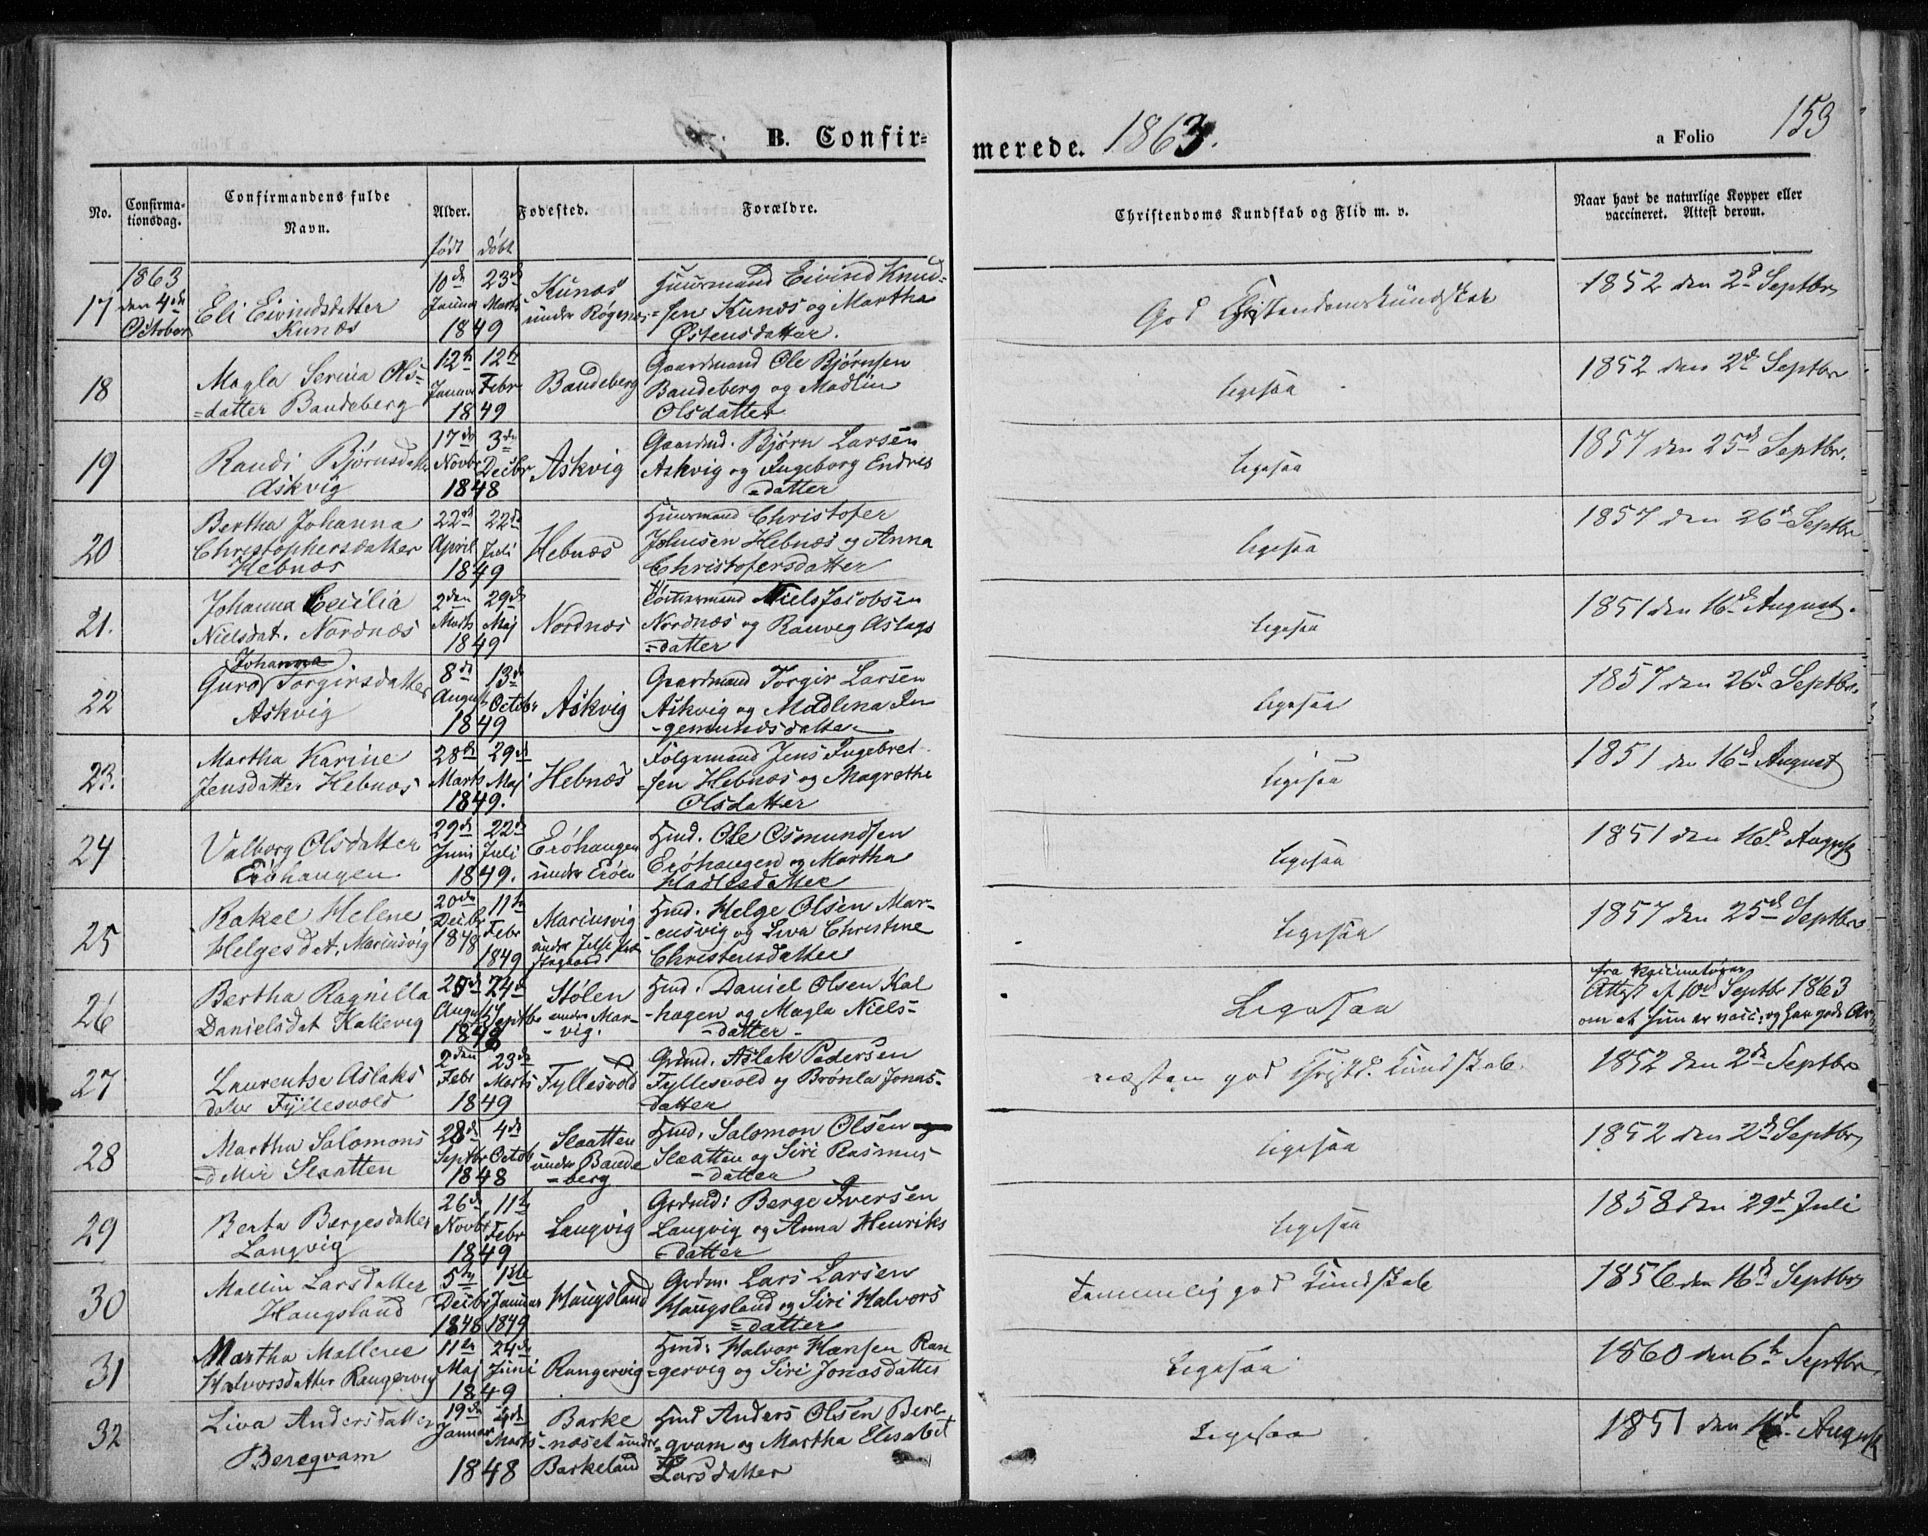 B. Confir=
merede. 1863.
a Folio 153
No.
Confirma-
tionsdag.
Confirmandens fulde
Navn.
Alder.
født
døbt
Fødested.
Forældre.
Christendoms Kundskab og Flid m. v.
Naar havt de naturlige Kopper eller
vaccineret. Attest derom.
1863
17 den 4de
October
Eli Eivindsdatter
Kunæs
10de Januar 23de Marts
1849
Kunæs
under Røgenæs
Huusmand Eivind Knud=
=sen Kunæs og Martha
Østensdatter.
God Christendomskundskab
1852 den 2d Septbr
18
Magla Serina Ols=
=datter Bandeberg
12te Januar 12te Febr
1849
Bandeberg
Gaardmand Ole Bjørnsen
Bandeberg og Madlin
Olsdatter
Ligesaa
1852 den 2d Septbr
19
Randi Bjørnsdatter
Askvig
17de Novbr 3de Decbr
1848
Askvig
Gaardmd. Bjørn Larsen
Askvig og Ingeborg Endres
=datter
Ligesaa
1857 den 25d Septbr.
20
Bertha Johanna
Christophersdatter
Hebnæs
22de April 22de Juli
1849
Hebnæs
Huusmand Christofer
Johnsen Hebnæs og Anna
Christofersdatter
Ligesaa
1857 den 26d Septbr
21.
Johanna Cecilia
Nielsdat. Nordnæs
2den Marts 29de Maj
1849
Nordnæs
Huusmand Niels Jacobsen
Nordnæs og Ranveg Aslags
=datter
Ligesaa
1851 den 16d August.
22
Johanna
Guro Torgirsdatter
Askvig
8de August 13de Octobr
1849
Askvig
Gaardmand Torgir Larsen
Askvig og Madlena In
-gemundsdatter
Ligesaa
1857 den 26d Septbr.
23.
Martha Karine
Jensdatter Hebnæs
28de Marts 29de Maj
1849.
Hebnæs
Følgemand Jens Ingebret-
=sen Hebnæs og Magrethe
Olsdatter
Ligesaa
1851 den 16d August
24
Valborg Olsdatter
Erøhaugen
29de Juni 22de Juli
1849.
Erøhaugen
under Erøen
Hmd. Ole Osmundsen
Erøhaugen og Martha
Hadlesdatter
Ligesaa
1851 den 16d August
25
Rakel Helene
Helgesdat. Mariusvig
20de Decbr 1848 11te Febr
1849
Mariusvig
under Jelse Præ
stegaard
Hmd. Helge Olsen Mar-
-cusvig og Liva Christine
Christensdatter
Ligesaa
1857 den 25d Septbr
26
Bertha Ragnilla
Danielsdat Kallevig
20de August 24de Septbr
1848
Stølen
under Mar-
-vig.
Hmd. Daniel Olsen Kal
-hagen og Magla Niels-
-datter-
Ligesaa
fra Vaccinatøren
Attest af 10d Septbr 1863
om at hun er vacc: og har gode Ar
27
Laurentse Aslaks
datter Fyllesvold
2den Febr 23de Marts
1849
Fyllesvold
Grdmd. Aslak Pedersen
Fyllesvold og Brønla Jonas-
datter
næsten god Christd. Kundskab.
1852 den 2d Septbr
28
Martha Salomons
-datter Slaatten
28de Septbr 4de Octob
1848
Slaatten
under Bande
-berg
Hmd. Salomon Olsen
Slaatten og Siri Rasmus-
-datter
Ligesaa
1852 den 2d Septbr
29
Berta Bergesdatter
Langvig
26de Novbr 11te Febr
1849
Langvig
Grdmd: Berge Iversen
Langvig og Anna Henriks
=datter
Ligesaa
1858 den 29d Juli
30
Mallin Larsdatter
Haugsland
5te Decbr 1ste Januar
1848 1849
Haugsland
Grdm. Lars Larsen
Haugsland og Siri Halvors
=datter
Temmelig god Kundskab
1856 den 16d Septbr
31
Martha Mallene
Halvorsdatter Rangervig
11te Maj 24de Juni
1849
Rangervig
Hmd: Halvor Hansen Ran
-gervig og Siri Jonasdatter
Ligesaa
1860 den 6te Septbr
32
Liva Andersdatter
Bereqvam
19de Januar 4de Marts
1848
Barke
-næset under
Barkeland
Hmd Anders Olsen Bere-
-qvam og Martha Elisabet
Larsdatter
Ligesaa
1851 den 16d August